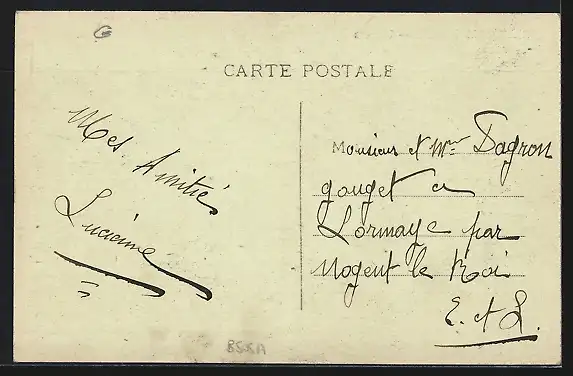 CARTE POSTALE
Mes Amitiés
Lucienne
Monsieur et Mme Dagron
gouget a
Lormaye par
Nogent le Roi
E. et L.
BSSA